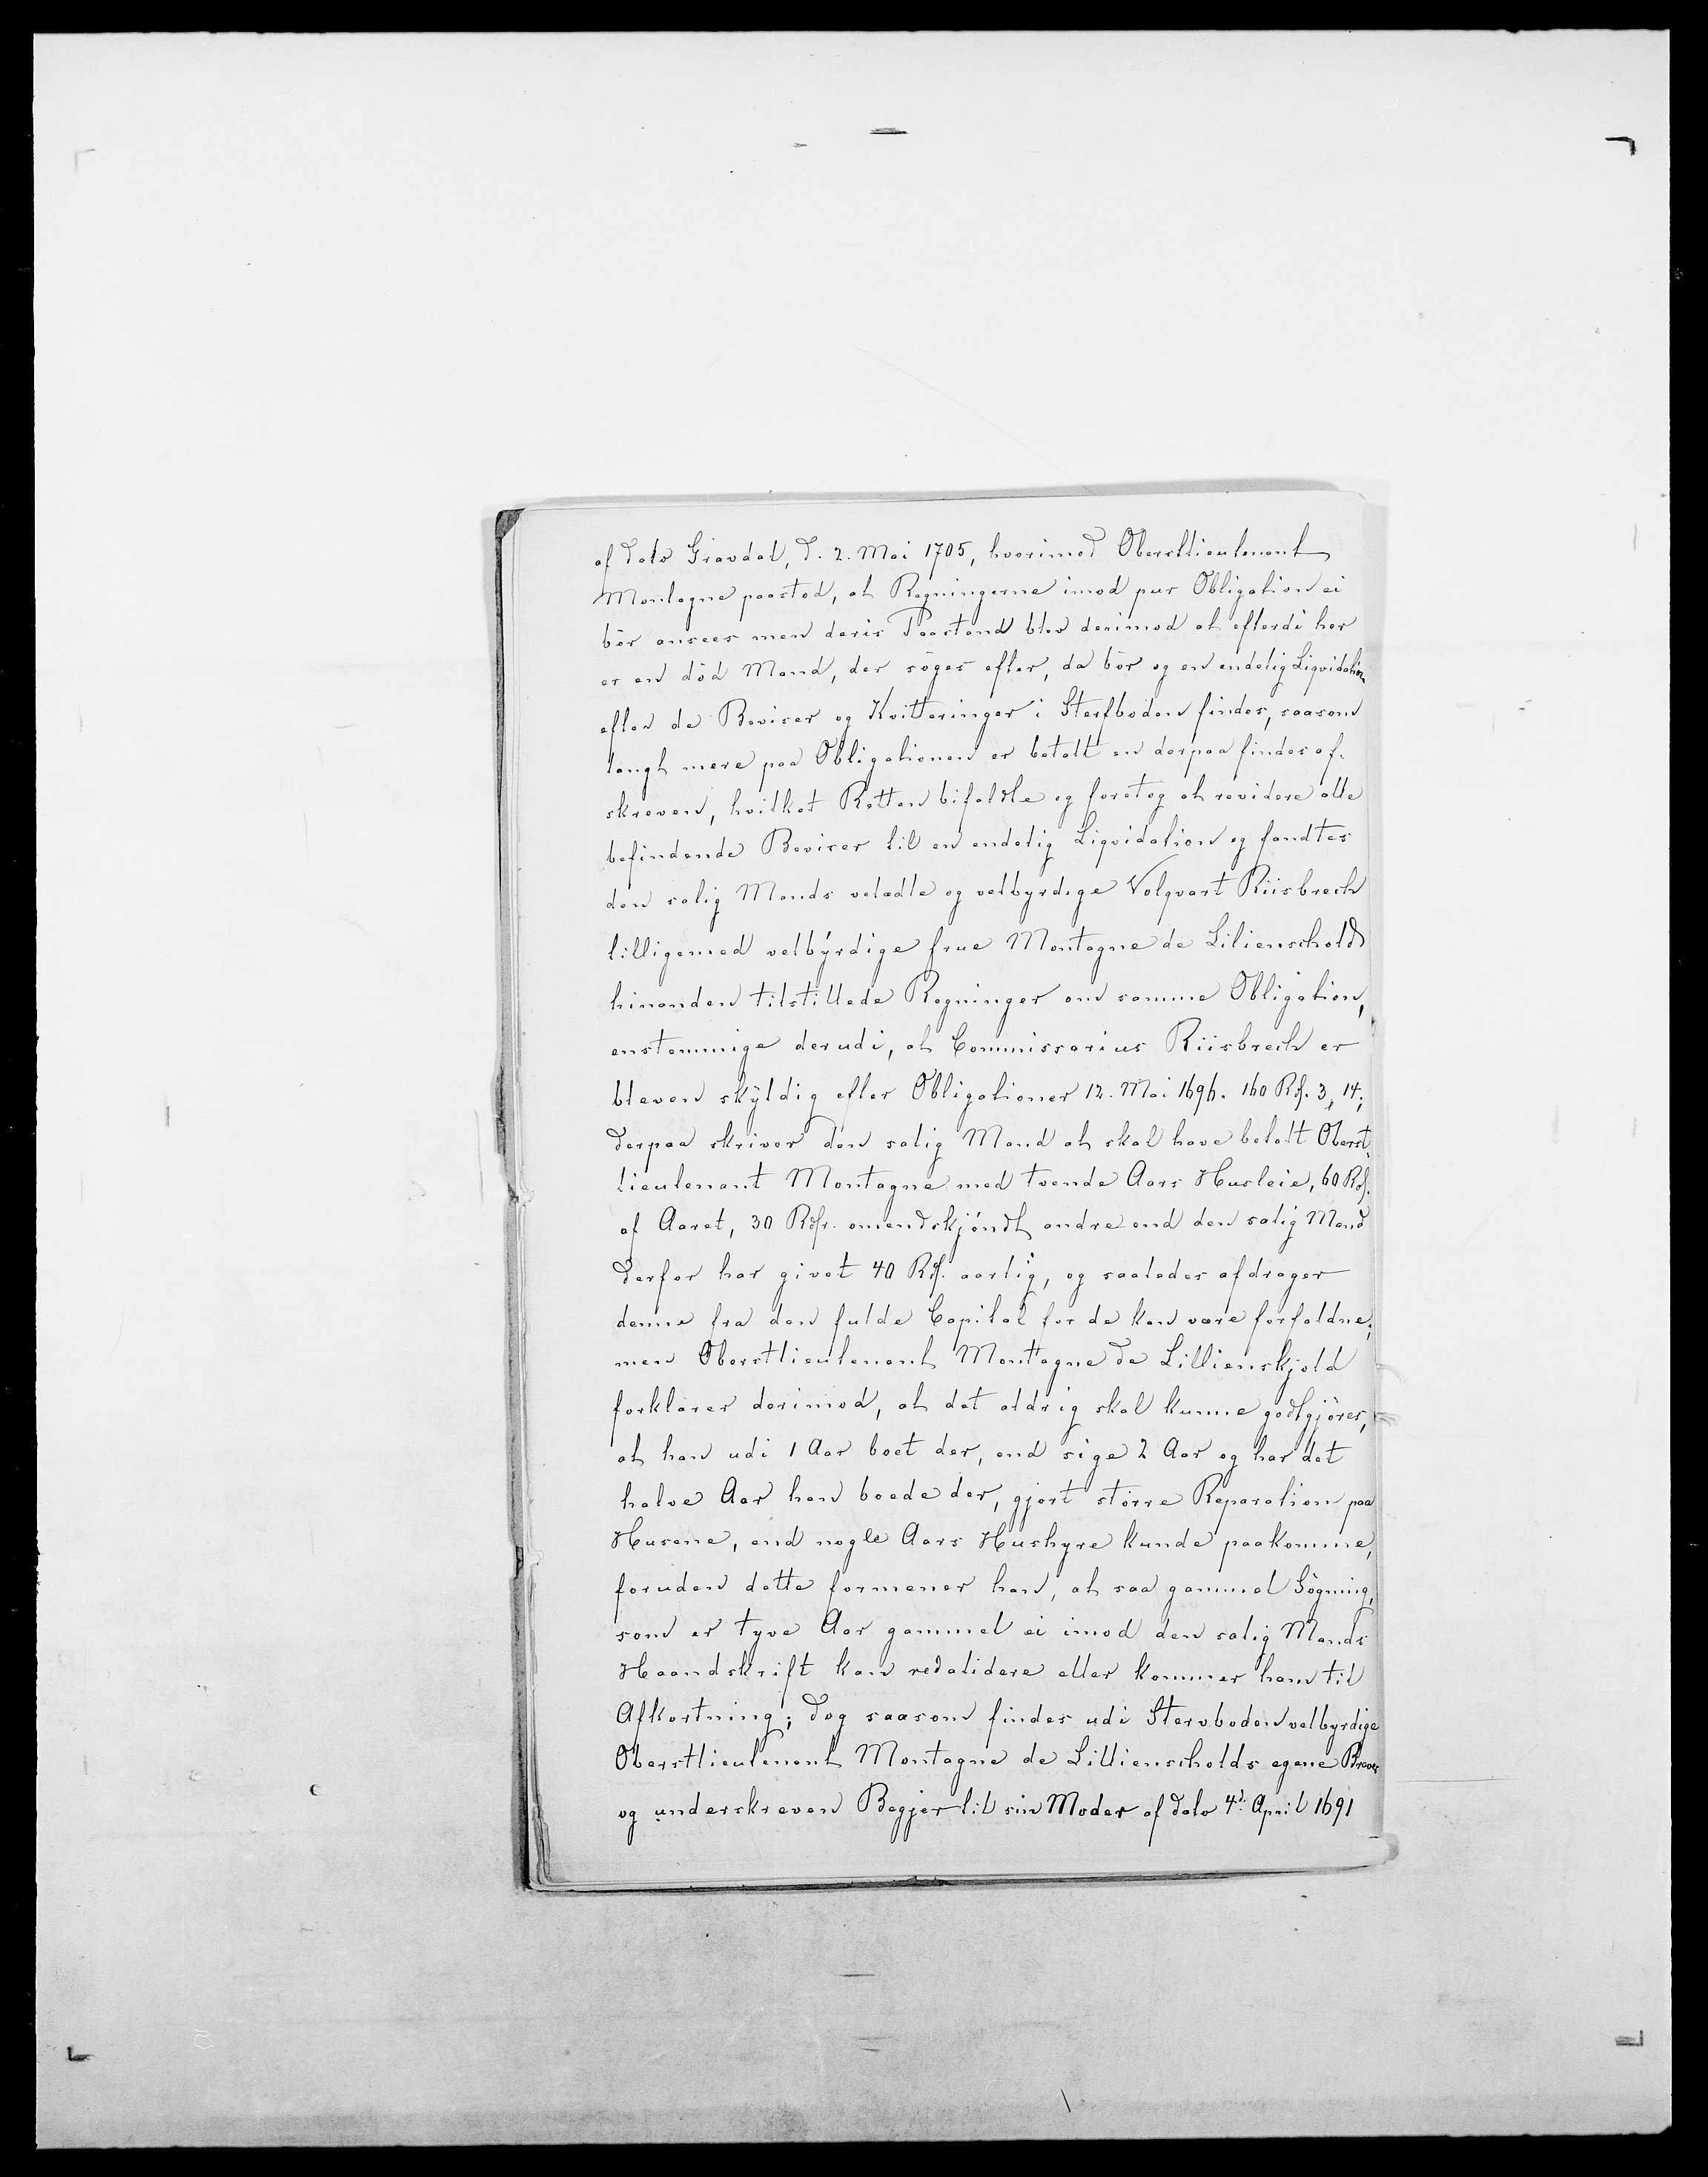 af dato Gravdal, d. 2. Mai 1705, hvorimod Oberstlieutenant
Montagne paastod, at Regningerne imod pur Obligation ei
bör ansees men deris Paastand blev derimod at efterdi her
er en död Mand, der söges efter, da bör og en endelig Liqvidation
efter de Beviser og Kvitteringer i Sterfboden findes, saasom
langt mere paa Obligationen er betalt en derpaa findes af-
skreven, hvilket Retten bifaldte og foretog at revidere alle
befindende Beviser til en endelig Liqvidation og fandtes
den salig Mands velædle og velbyrdige Volqvart Riisbrech
tilligemed velbyrdige frue Montagne de Lilienschold
hinanden tilstillede Regninger om samme Obligation,
enstemmige derudi, at Commissarius Riisbrech er
bleven skyldig efter Obligationer 12. Mai 1696. 160 Rdr. 3, 14;
derpaa skriver den salig Mand at skal have betalt Oberst-
lieutenant Montagne med tvende Aars Husleie, 60 Rdr.
af Aaret, 30 Rdr. omendskjöndt andre end den salig Mand
derfor har givet 40 Rdr. aarlig, og saaledes afdrager
denne fra den fulde Capital for de kan være forfaldne;
men Oberstlieutenant Montagne de Lillienskjold
forklarer derimod, at det aldrig skal kunne godtgjöres,
at han udi 1 Aar boet der, end sige 2 Aar og har det
halve Aar han boede der, gjort större Reparation paa
Husene, end nogle Aars Hushyre kunde paakomme,
foruden dette formener han, at saa gammel Sögning,
som er tyve Aar gammel ei imod den salig Mands
Haandskrift kan redalidere eller kommer ham til
Afkortning; dog saasom findes udi Stervboden velbyrdige
Oberstlieutenant Montagne de Lillienscholds egene Brever
og underskreven Begjer til sin Moder af dato 4d. April 1691